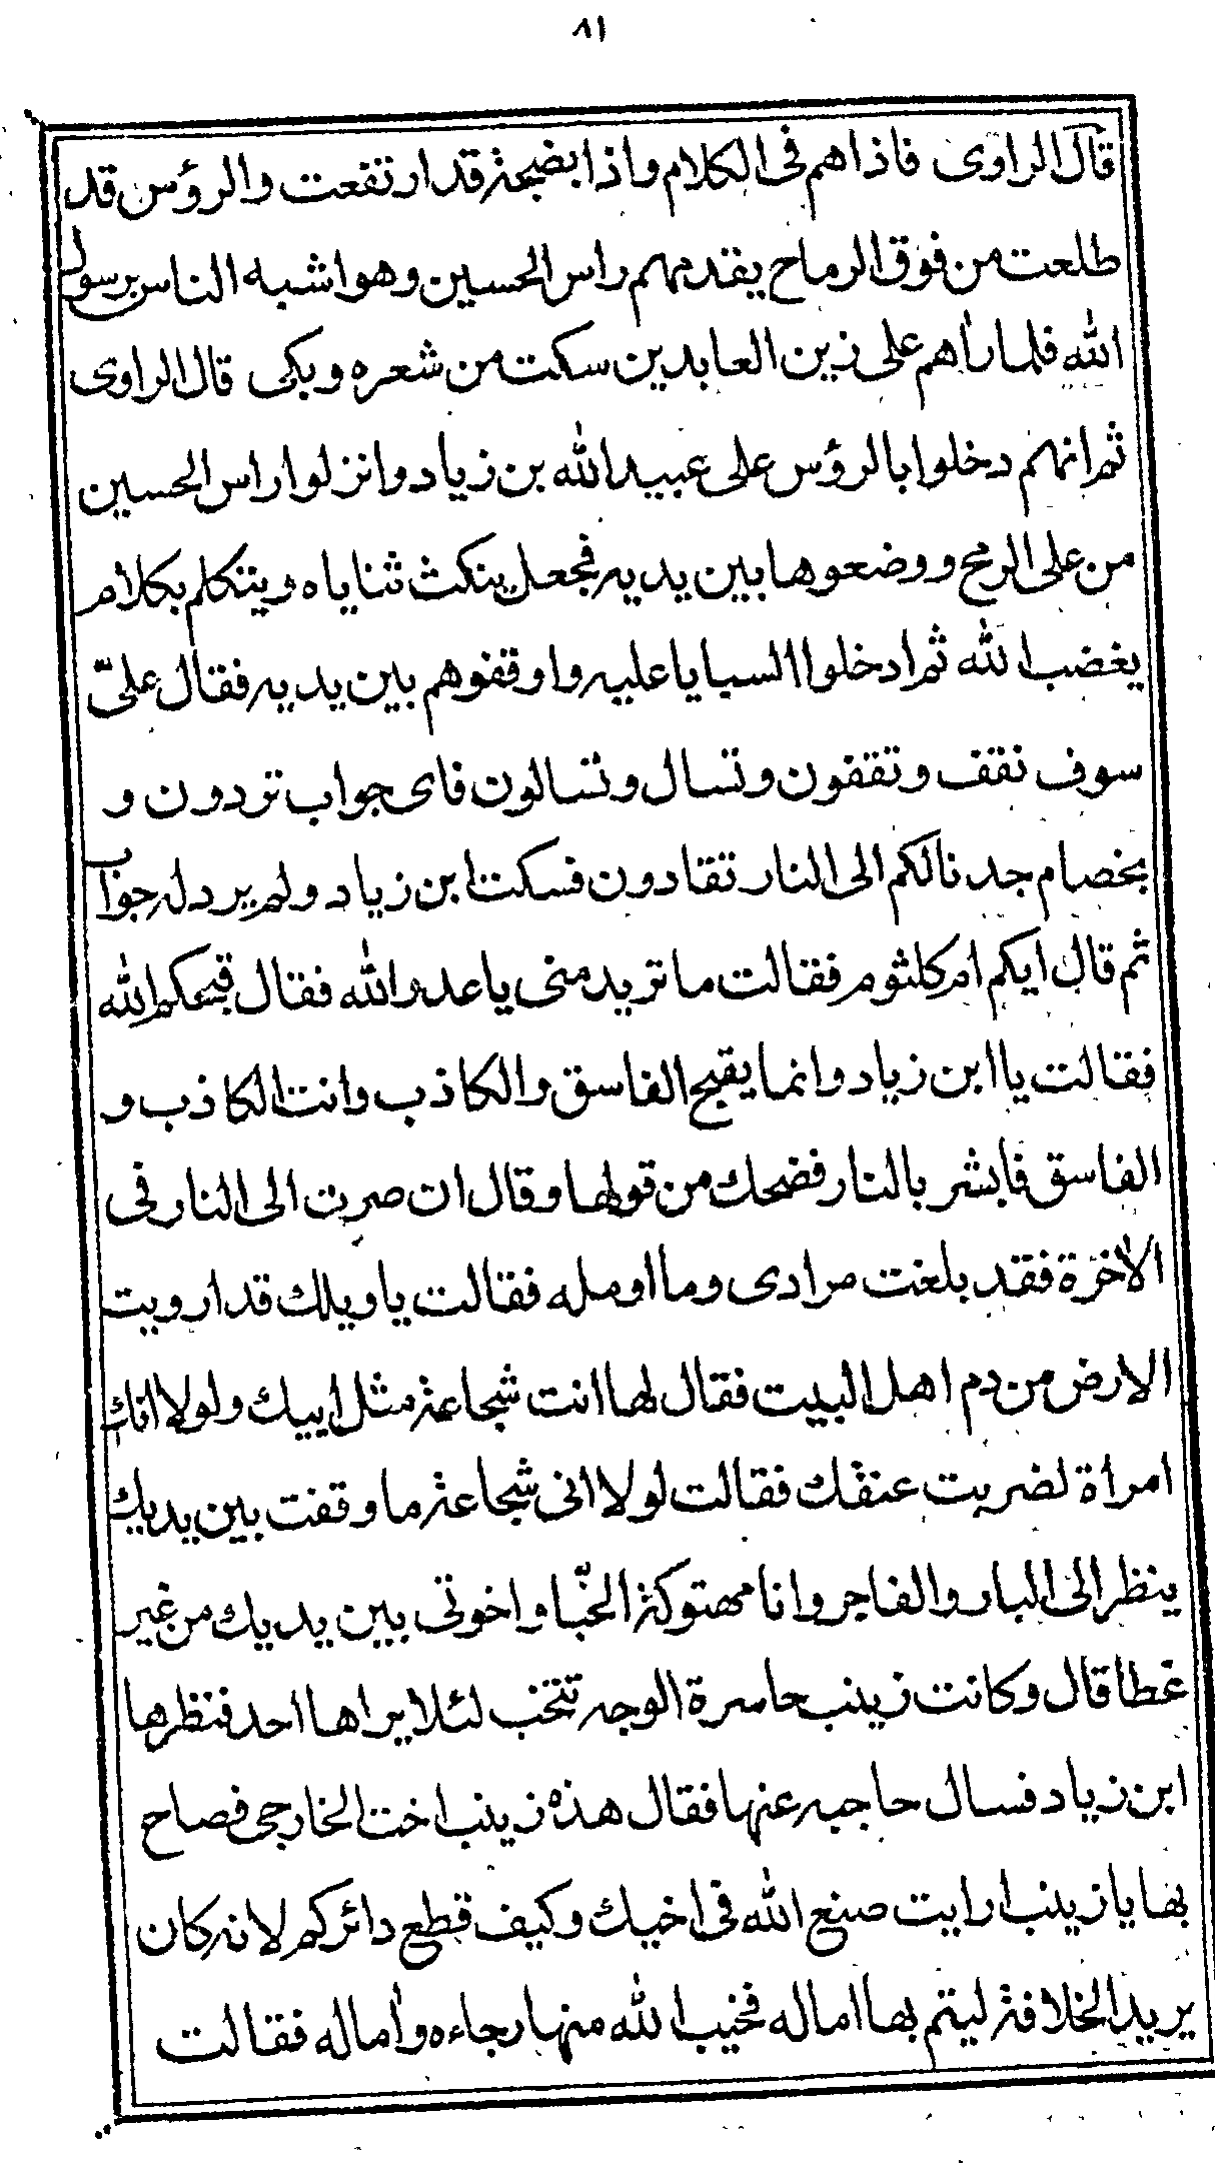 ٨١
قال الراوى فاذاهم فى الكلام واذا بضجة قد ارتفعت والرؤس قد
طلعت من فوق الرماح يقدمهم راس الحسين وهو اشبه الناس برسول
الله فلما رأهم على زين العابدين سكت من شعره وبكى قال الراوى
ثم انهم دخلوا بالرؤس على عبيد الله بن زياد وانزلوا راس الحسين
من على الرمح ووضعوها بين يديه فجعل ينكث ثناياه ويتكلم بكلام
يغضب الله ثم ادخلوا السبايا عليه واوقفوهم بين يديه فقال علىّ
سوف نقف وتقفون ونسال وتسالون فاى جواب تردون و
بخصام جدنا لكم الى النار تقادون فسكت ابن زياد ولم يرد له جواب
ثم قال ايكم ام كلثوم فقالت ما تريد منى يا عدو الله فقال قبحكم الله
فقالت يا ابن زياد وانما يقبح الفاسق والكاذب وانت الكاذب و
الفاسق فابشر بالنار فضحك من قولها وقال ان صرت الى النار فى
الأخرة فقد بلغت مرادى وما اومله فقالت يا ويلك قد ارويت
الارض من دم اهل البيت فقال لها انت شجاعة مثل ابيك ولولا انك
امراة لضربت عنقك فقالت لولا انى شجاعة ما وقفت بين يديك
ينظر الى البار والفاجر وانا مهتوكة الخبا واخوتى بين يديك من غير
غطا قال وكانت زينب حاسرة الوجه تنخب لئلا يراها احد فنظرها
ابن زياد فسال حاجبه عنها فقال هذه زينب اخت الخارجى فصاح
بها يا زينب ارايت صنع الله فى اخيك وكيف قطع دائركم لانه كان
يريد الخلافة ليتم بها اماله فخيب الله منها رجاءه وأماله فقالت